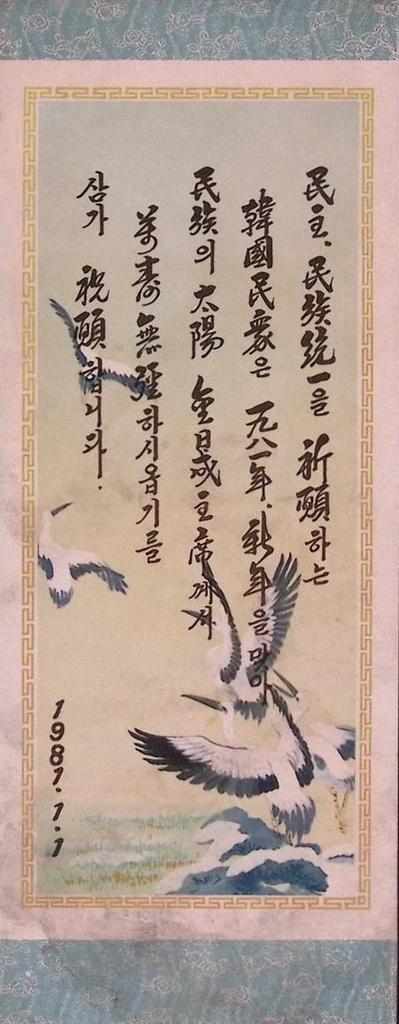 民主, 民族統一을 祈願하는
韓國民衆은 一九八一年, 新年을 맞아
民族의 太陽 金日成主席께서
萬壽無疆하시옵기를
삼가 祝願합니다.
1981.1.1